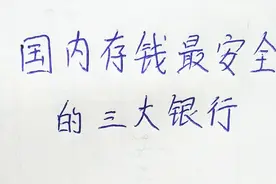 国内存钱最安全
的三大银行